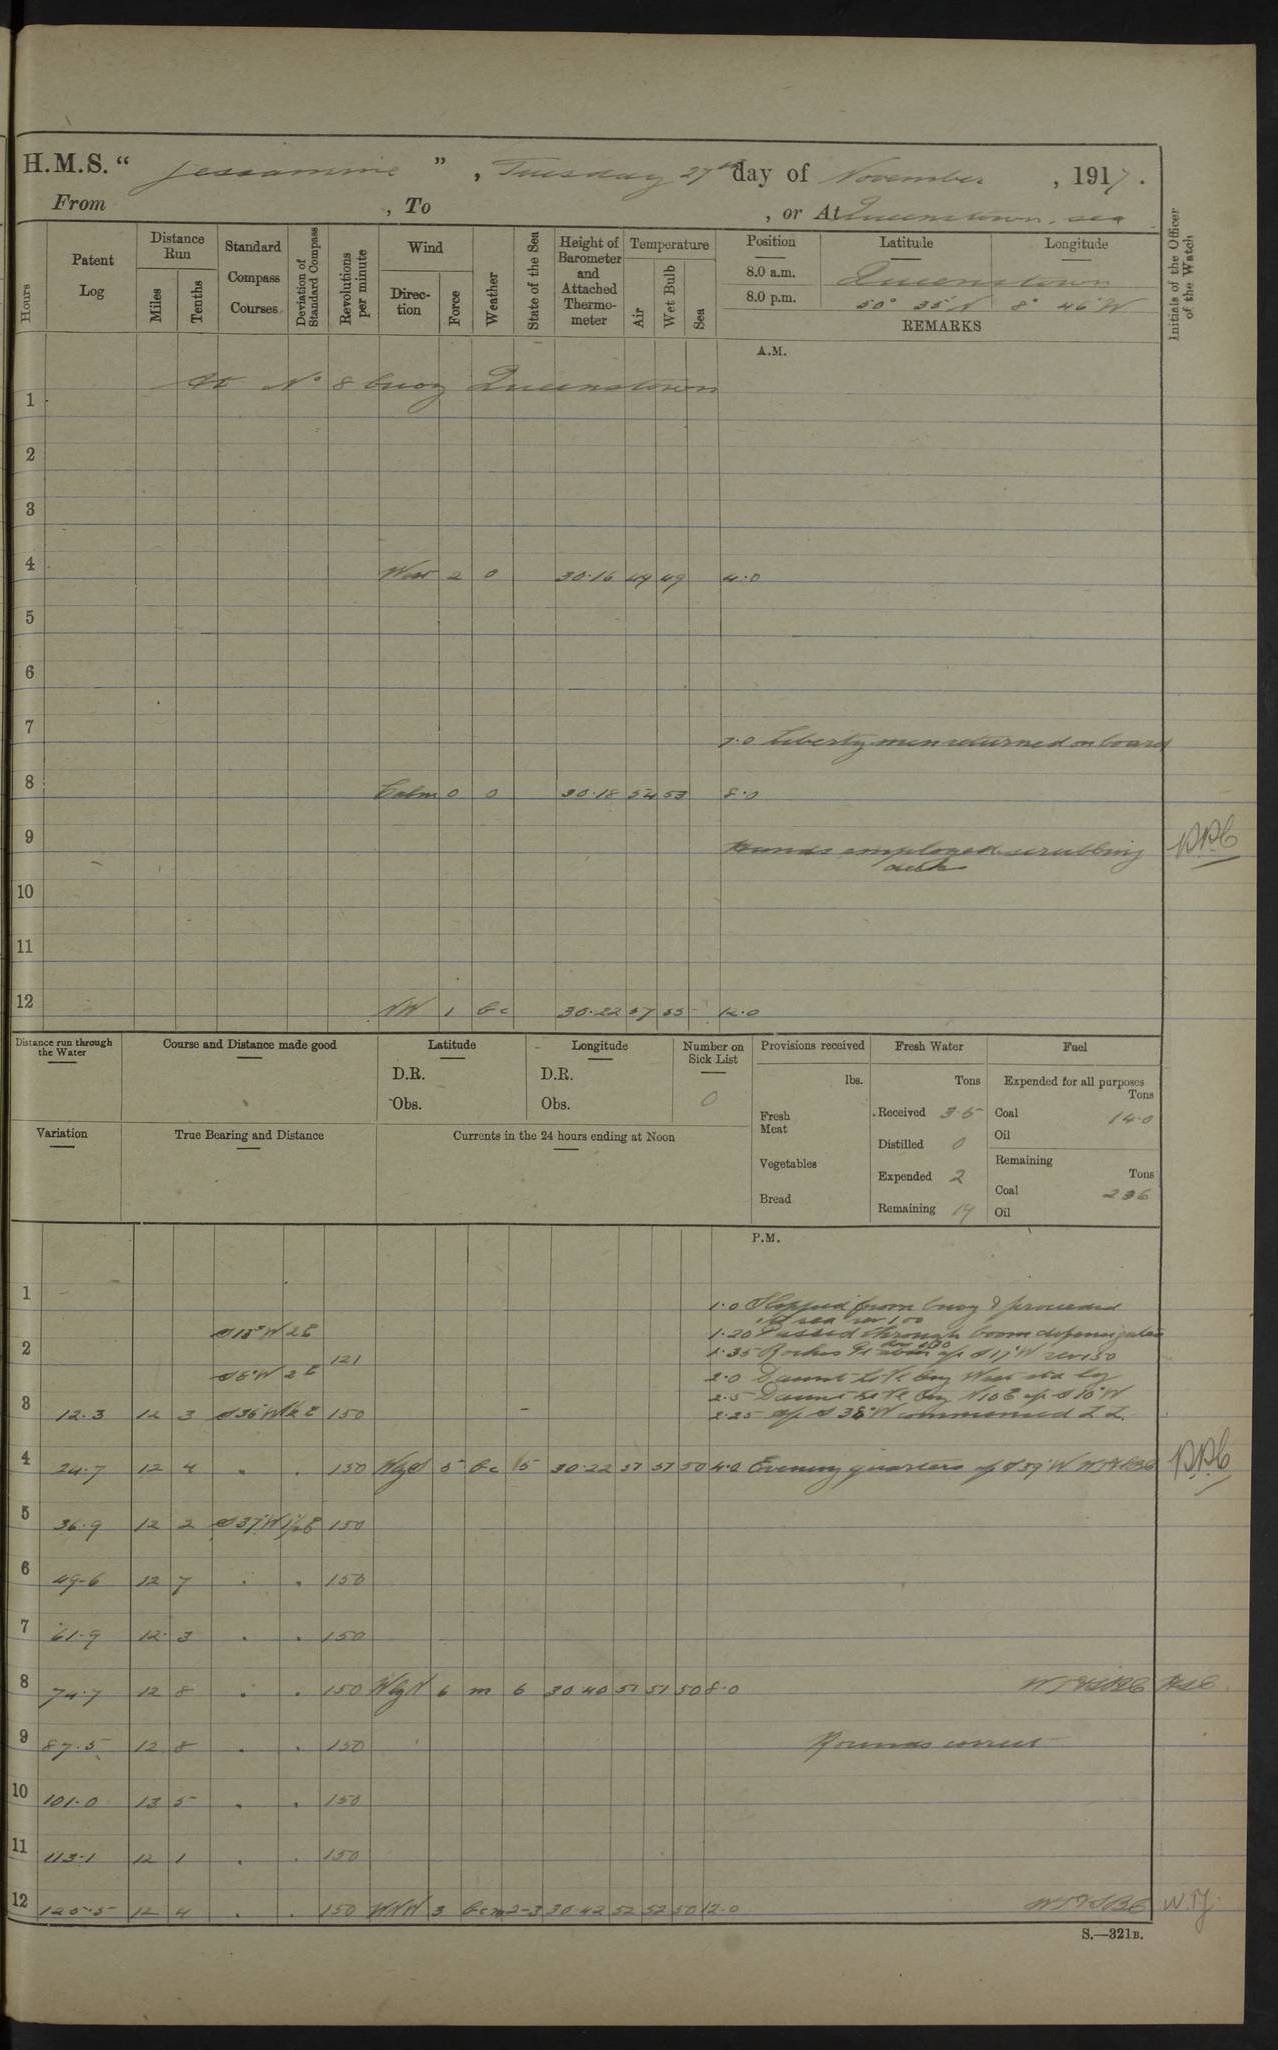 H.M.S. " Jessamine " , Tuesday 27th day of November , 1917 .
From , To , or At Queenstown. sea
Hours
Patent Log
Distance Run
Miles
Tenths
Standard Compass Courses
Deviation of Standard Compass
Revolutions per minute
Wind
Direction
Force
Weather
State of the Sea
Height of Barometer and Attached Thermometer
Temperature
Air
Wet Bulb
Sea
Position
8.0 a.m.
8.0 p.m.
Latitude
Longitude
Queenstown
50° 35' N 8° 46' W
REMARKS
Initials of the Officer of the Watch
A.M.
At No 8 buoy Queenstown
1
2
3
4 West 2 0 30.16 49 49 4.0
5
6
7 7.0 Liberty men returned on board
8 Calm 0 0 30.18 54 53 8.0
9 Hands employed scrubbing
deck
10
11
12 NW 1 bc 30.22 57 55 12.0
Distance run through the Water
Course and Distance made good
Latitude
D.R.
Obs.
Longitude
D.R.
Obs.
Number on Sick List
0
Variation
True Bearing and Distance
Currents in the 24 hours ending at Noon
Provisions received
lbs.
Fresh Meat
Vegetables
Bread
Fresh Water
Tons
Received 3.5
Distilled 0
Expended 2
Remaining 19
Fuel
Expended for all purposes
Tons
Coal 14.0
Oil
Remaining
Tons
Coal 236
Oil
P.M.
1 1.0 Slipped from buoy & proceeded
to sea rev 100
S15°W 2E 1.20 Passed through boom defence gates
2 121 1.35 Roches Pt a/c S17°W rev 150
S6°W 2E 2.0 Daunt Lt Vl buoy West
2.5 Daunt Lt Vl buoy N10E a/c S10°W
3 12.3 12 3 S36°W 150 2.25 a/c S38°W commenced Z Z
4 24.7 12 4 " " 150 WbyS 5 bc 5 30.22 57 57 50 4.0 Evening quarters a/c S39°W
5 36.9 12 2 S37°W 1½E 150
6 49.6 12 7 " " 150
7 61.9 12 3 " " 150
8 74.7 12 8 " " 150 WbyN 6 m 6 30 40 51 51 50 8.0
9 87.5 12 8 " " 150 Rounds correct
10 101.0 13 5 " " 150
11 113.1 12 1 " " 150
12 125.5 12 4 " " 150 WNW 3 bcm 2-3 30 42 52 52 50 12.0
S.—321B.